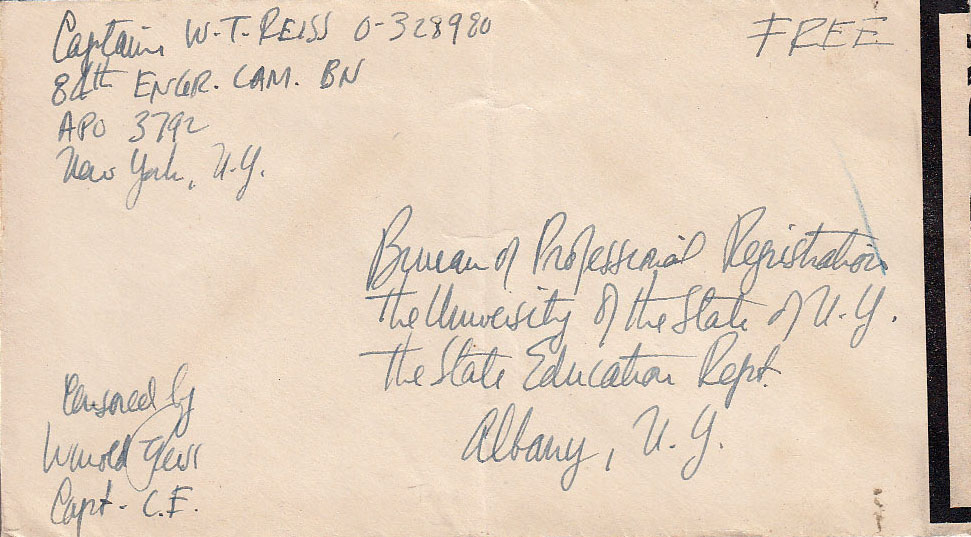 Captain W.T. REISS O-328980
84th ENGR. CAM. BN
APO 3792
New York, N.Y.
FREE
Bureau of Professional Registration
The University of the State of N.Y.
The State Education Dept.
Albany, N.Y.
Censored by
Capt. C.E.